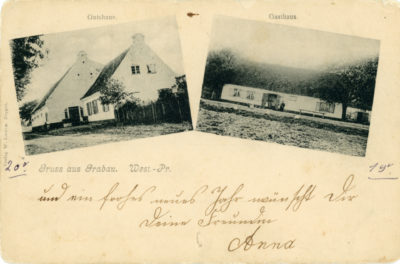 Gutshaus.
Gasthaus.
Gruss aus Grabau. West-Pr.
und ein frohes neues Jahr wünscht Dir
Deine Freundin
Anna